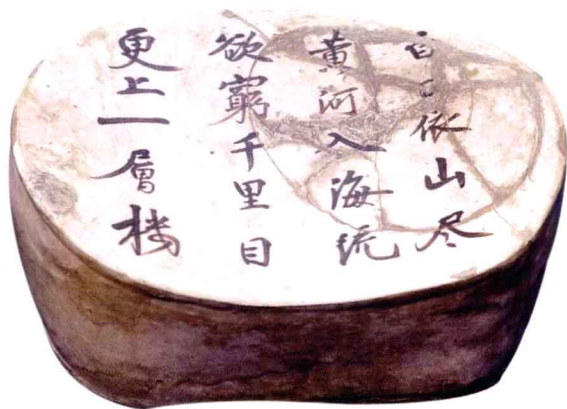 白日依山尽
黄河入海流
欲窮千里目
更上一層楼